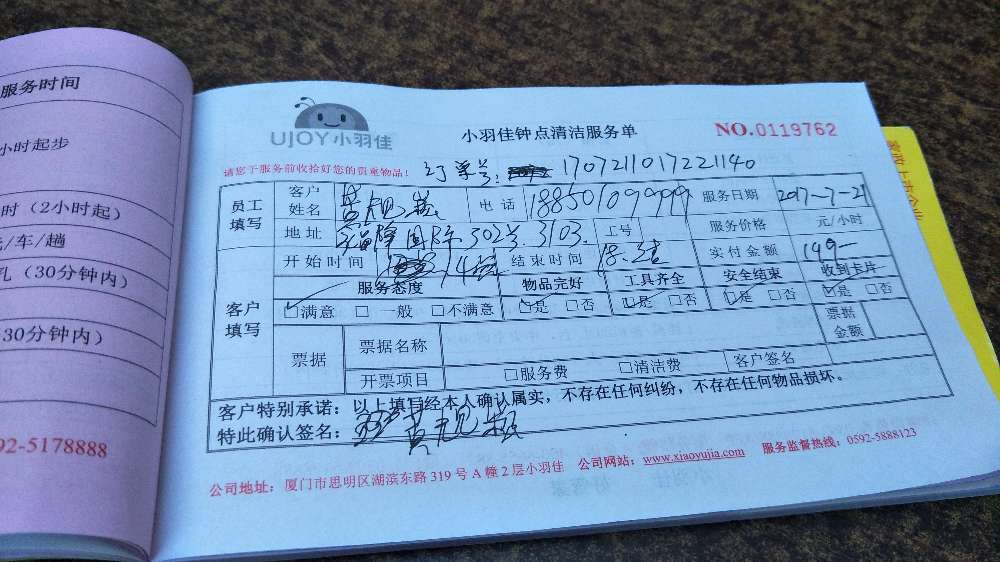 服务时间
小时起步
时（2小时起）
元/车/趟
孔（30分钟内）
30分钟内）
92-5178888
UJOY小羽佳
小羽佳钟点清洁服务单
NO.0119762
请您于服务前收拾好您的贵重物品！
订单号：1707211017221140
员工填写
客户姓名 黄
电话 18850109999
服务日期 2017-7-21
地址 国际302号.3103.
工号
服务价格 元/小时
开始时间 14
结束时间
实付金额 149-
客户填写
服务态度 物品完好 工具齐全 安全结束 收到卡片
□满意 □一般 □不满意 □是 □否 □是 □否 □是 □否 □是 □否
票据 票据名称
票据金额
开票项目 □服务费 □清洁费 客户签名
客户特别承诺：以上填写经本人确认属实，不存在任何纠纷，不存在任何物品损坏。
特此确认签名：黄
公司地址：厦门市思明区湖滨东路319号A幢2层小羽佳 公司网站：www.xiaoyujia.com 服务监督热线：0592-5888123